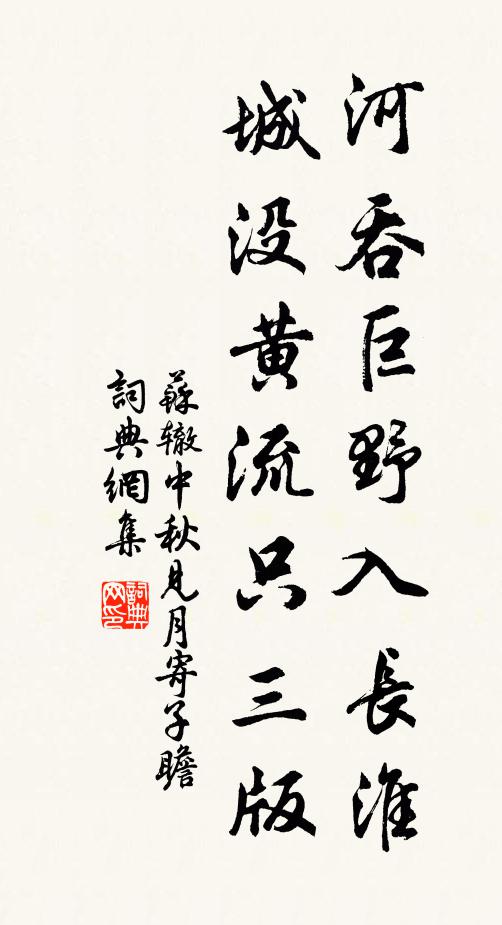 河吞巨野入長淮
城没黄流只三版
蘇辙中秋見月寄子瞻
詞典網集
詞典
网印